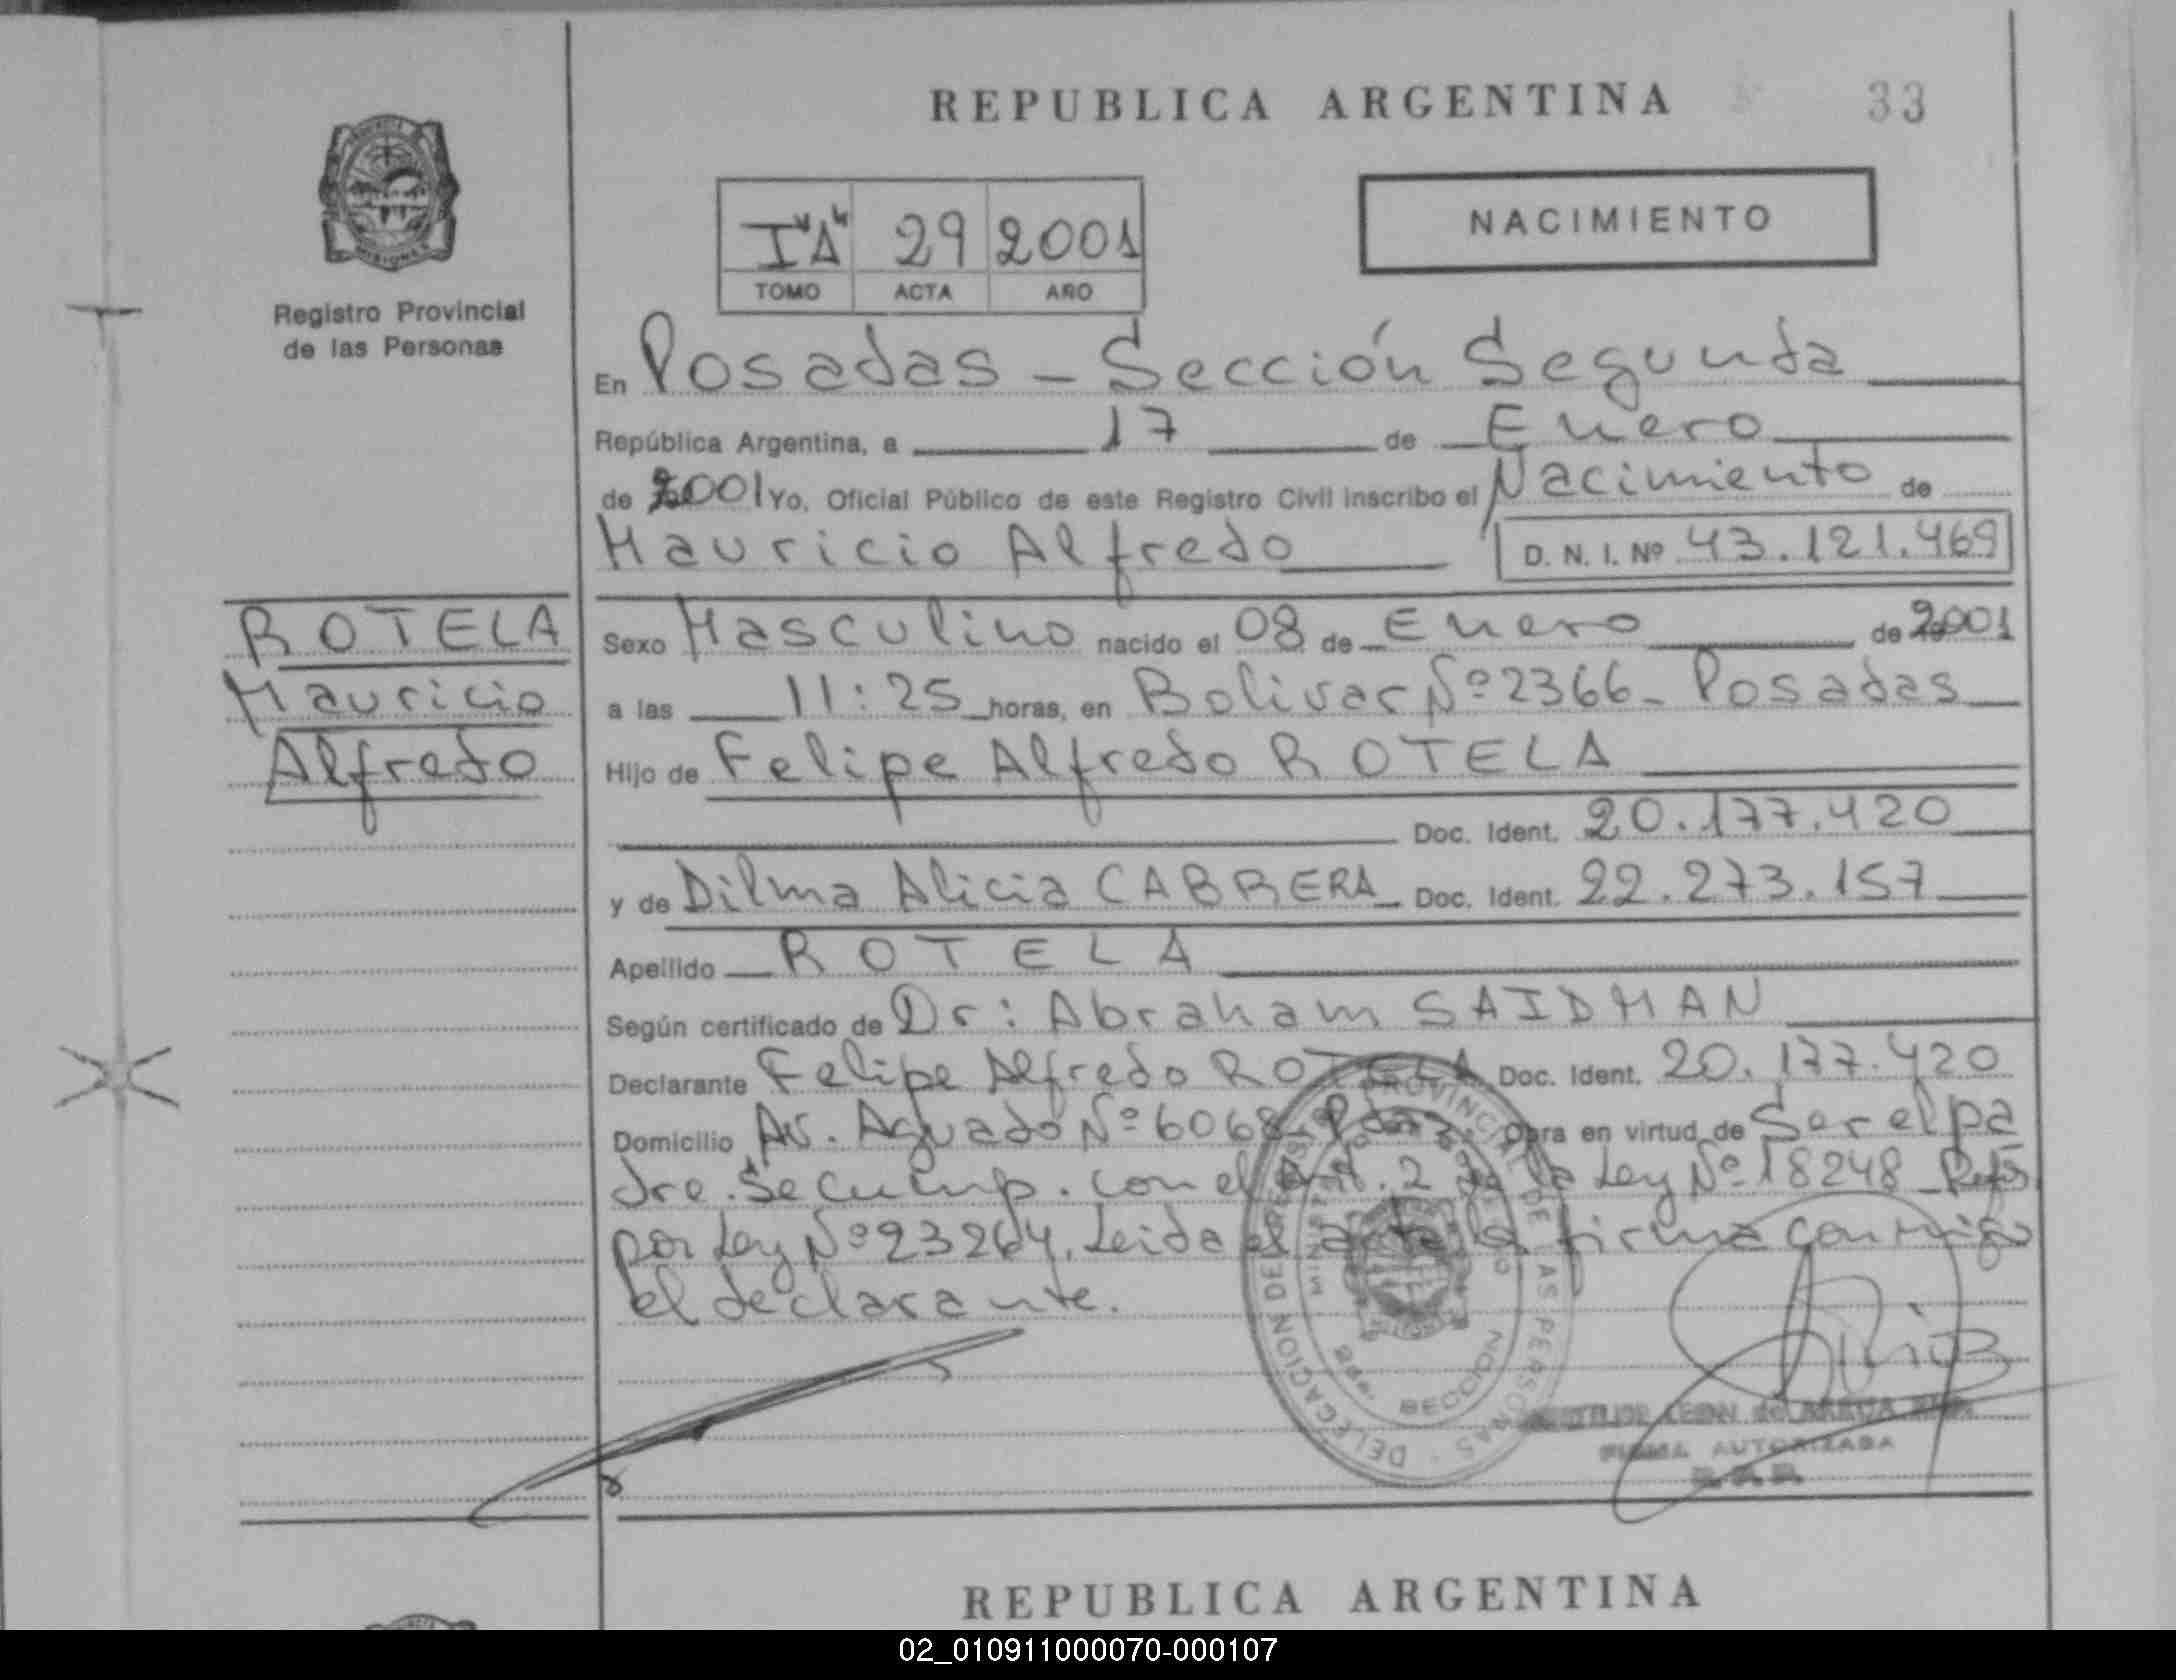 REPUBLICA ARGENTINA
33
Registro Provincial
de las Personas
I "A" 29 2001
TOMO ACTA AÑO
NACIMIENTO
En Posadas - Sección Segunda
República Argentina, a 17 de Enero
de 2001 Yo, Oficial Público de este Registro Civil inscribo el Nacimiento de
Mauricio Alfredo D. N. I. Nº 43.121.469
ROTELA
Mauricio
Alfredo
Sexo Masculino nacido el 08 de Enero de 2001
a las 11:25 horas, en Bolivar Nº 2366 - Posadas
Hijo de Felipe Alfredo ROTELA
Doc. Ident. 20.177.420
y de Dilma Alicia CABRERA Doc. Ident. 22.273.157
Apellido ROTELA
Según certificado de Dr: Abraham SAIDMAN
Declarante Felipe Alfredo ROTELA Doc. Ident. 20.177.420
Domicilio Av. Aguado Nº 6068 Obra en virtud de Ser el pa
dre. Se cump. con el Art. 2 de la Ley Nº 18248
por Ley Nº 23264. Leida el acta la firma conmigo
el declarante.
DELEGACION DE PROVINCIAL DE LAS PERSONAS
2da. SECCION
FIRMA AUTORIZADA
REPUBLICA ARGENTINA
02_010911000070-000107